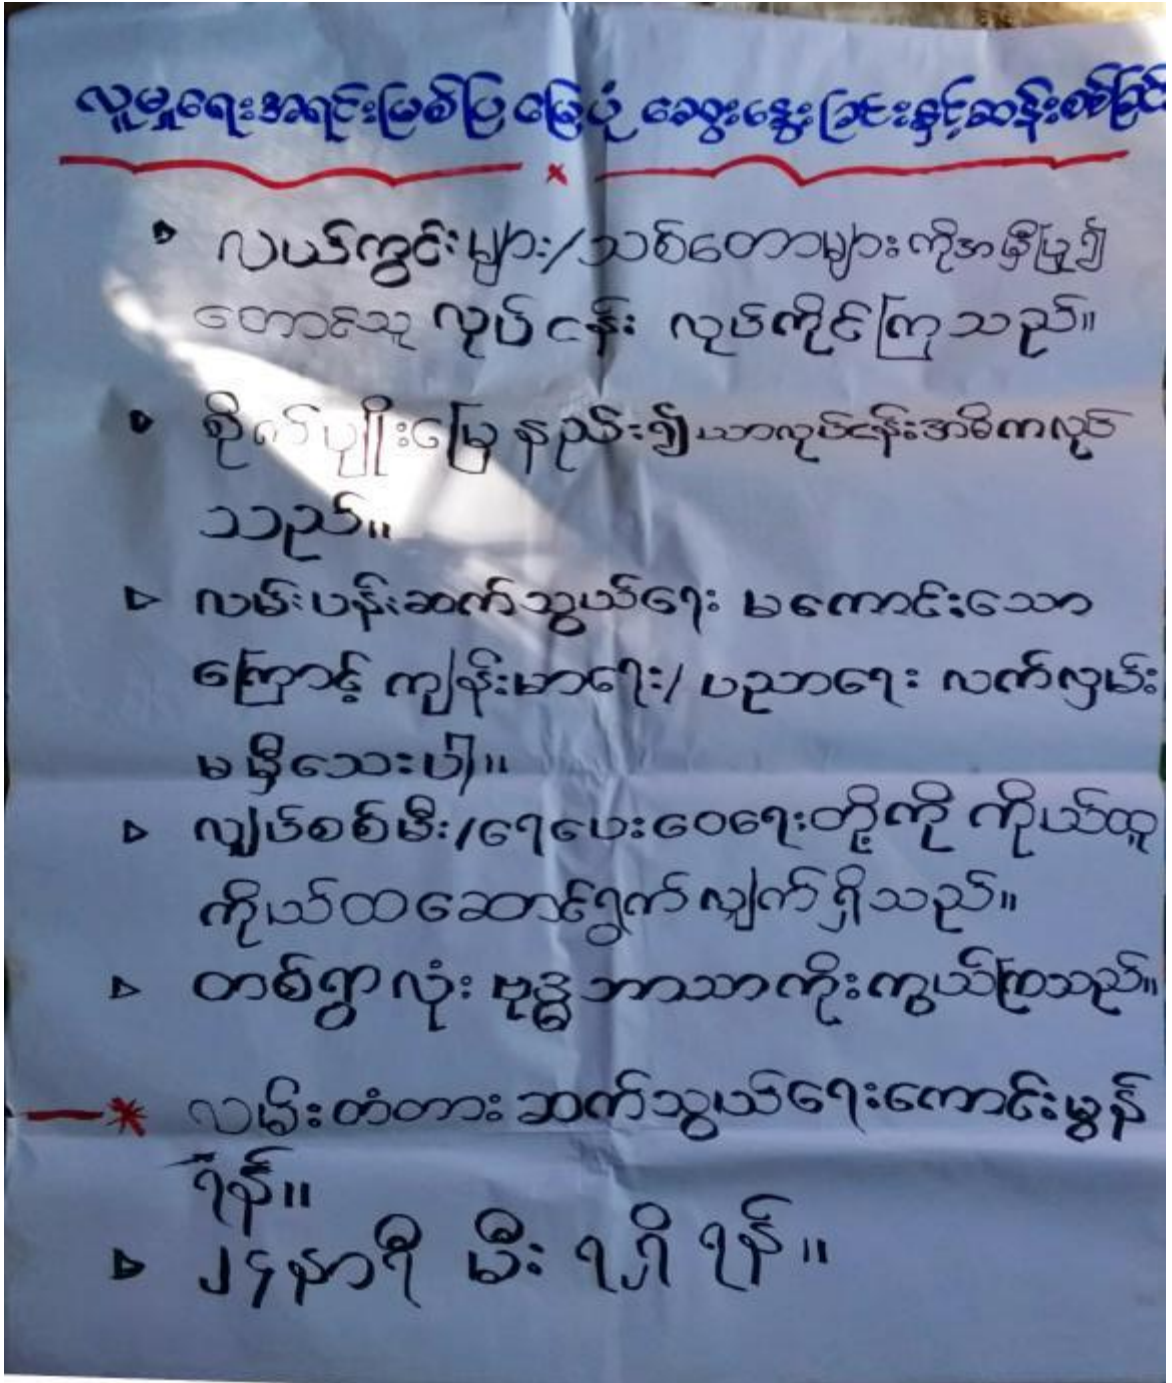 လူမှုရေးအရင်းမြစ်ပြမြေပုံ ဆွေးနွေးခြင်းနှင့်ဆန်းစစ်ခြင်
လယ်ကွင်းများ/သစ်တောများကိုအမှီပြု၍
တောင်သူ လုပ်ငန်း လုပ်ကိုင်ကြသည်။
စိုက်ပျိုးမြေနည်း၍ ယာလုပ်ငန်းအဓိကလုပ်
သည်။
လမ်းပန်းဆက်သွယ်ရေး မကောင်းသော
ကြောင့် ကျန်းမာရေး/ ပညာရေး လက်လှမ်း
မမှီသေးပါ။
လျှပ်စစ်မီး/ရေပေးဝေရေးတို့ကို ကိုယ်ထူ
ကိုယ်ထဆောင်ရွက်လျှက်ရှိသည်။
တစ်ရွာလုံး ဗုဒ္ဓဘာသာကိုးကွယ်ကြသည်။
လမ်းတံတားဆက်သွယ်ရေးကောင်းမွန်
ရန်။
၂၄နာရီ မီး ရရှိရန်။